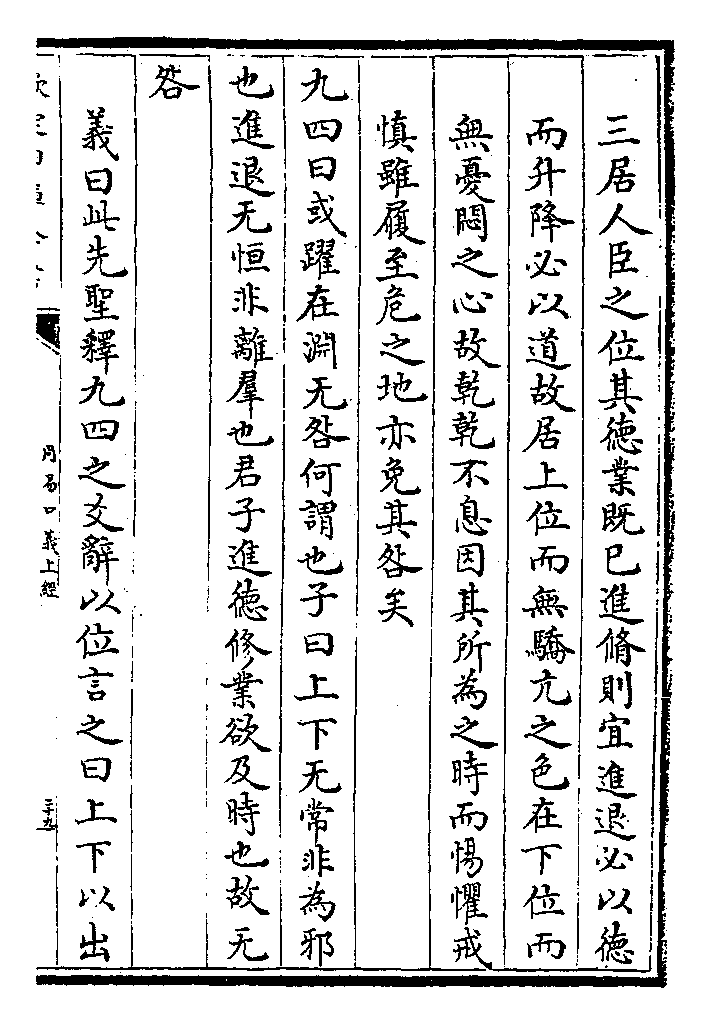 三居人臣之位其徳業既已進脩則宜進退必以徳
而升降必以道故居上位而無驕亢之色在下位而
無憂悶之心故乾乾不息因其所為之時而惕懼戒
慎雖履至危之地亦免其咎矣
九四曰或躍在淵无咎何謂也子曰上下无常非為邪
也進退无恒非離羣也君子進徳修業欲及時也故无
咎
義曰此先聖釋九四之爻辭以位言之曰上下以出
周易口義上經
三十九